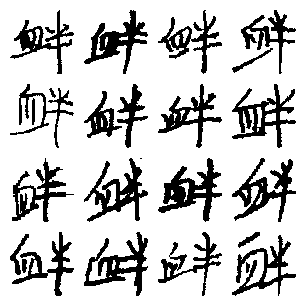 衅衅衅衅
衅衅衅衅
衅衅衅衅
衅衅衅衅